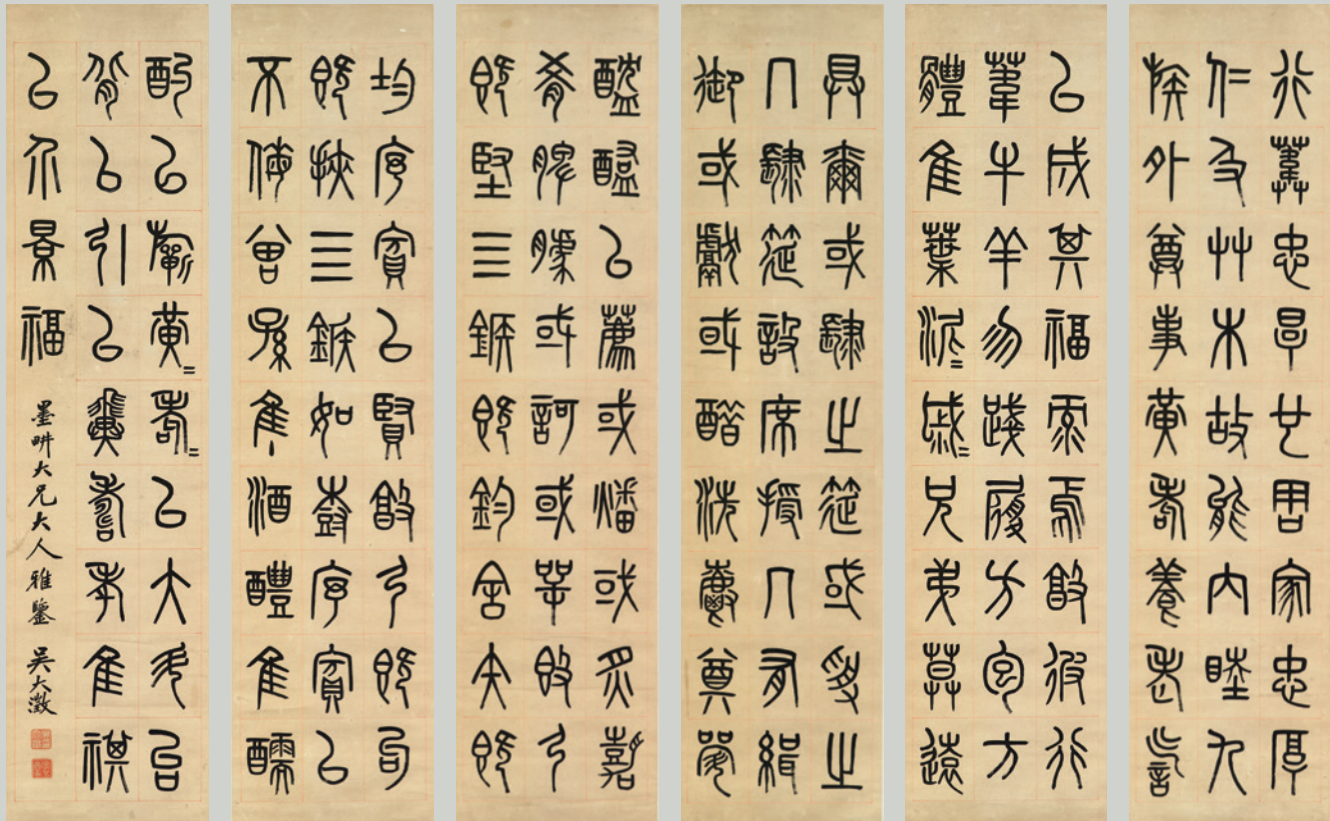 行葦忠厚也周家忠厚
仁及艸木故能內睦九
族外尊事黃耇養老乞言
以成其福祿焉敦彼行
葦牛羊勿踐履方苞方
體隹葉泥〻戚〻兄弟莫遠
具爾或肆之筵或授之
几肆筵設席授几有緝
御或獻或酢洗爵奠斝
醓醢以薦或燔或炙嘉
殽脾臄或歌或咢敦弓
既堅三鍭既鈞舍矢既
均序賓以賢敦弓既句
既挾三鍭如樹序賓以
不侮曾孫隹主酒醴隹醹
酌以祈黃〻耇〻以大斗台
背以引以翼壽考隹祺
以介景福
墨畊大兄大人雅鑒 吳大澂